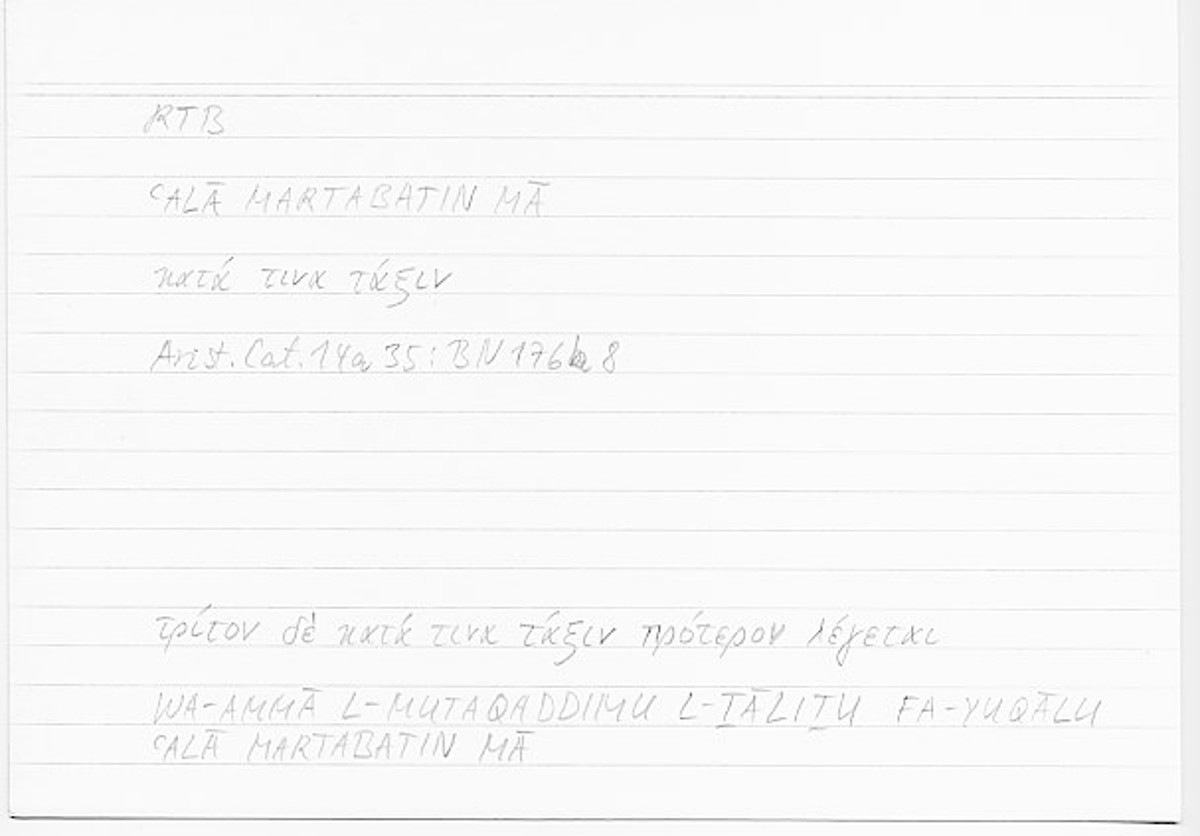 RTB
ʿALĀ MARTABATIN MĀ
κατά τινα τάξιν
Arist. Cat. 14a 35 : BN 176b 8
τρίτον δὲ κατά τινα τάξιν πρότερον λέγεται
WA-AMMĀ L-MUTAQADDIMU L-ṮĀLIṮU FA-YUQĀLU
ʿALĀ MARTABATIN MĀ